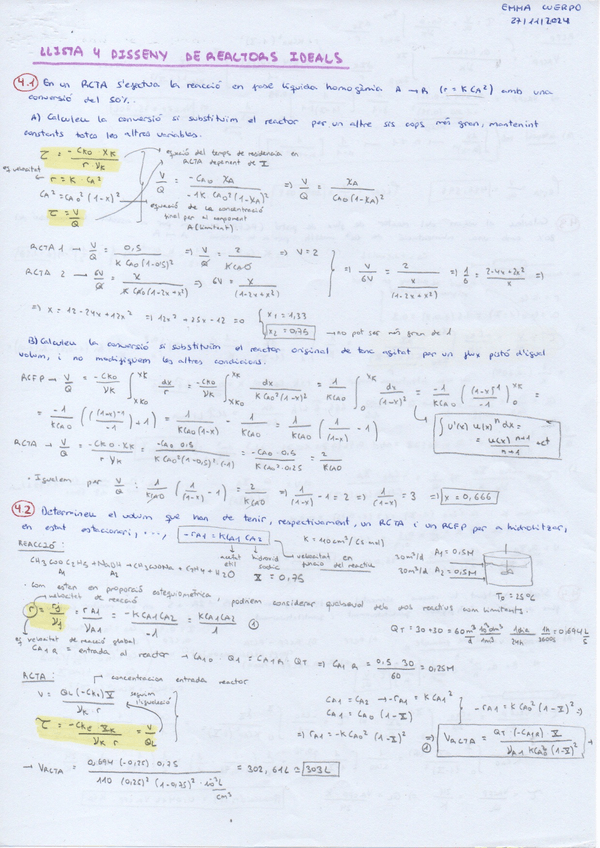 EMMA CUERPO
27/11/2024
LLISTA 4 DISSENY DE REACTORS IDEALS
4.1 En un RCTA s'efectua la reacció en fase líquida homogènia A → R (r = K CA²) amb una
conversió del 50%.
A) Calculeu la conversió si substituïm el reactor per un altre sis cops més gran, mantenint
constants totes les altres variables.
τ = -CK0 · XK / r νK
equació del temps de residència en
RCTA depenent de X
eq velocitat
r = K · CA²
CA² = CA0² (1-X)²
τ = V/Q
equació de la concentració
final per al component
A (limitant)
V/Q = -CA0 XA / -1K CA0² (1-XA)² ⇒ V/Q = XA / CA0 (1-XA)²
RCTA 1 → V/Q = 0,5 / K CA0 (1-0,5)² ⇒ V/Q = 2 / K CA0 ⇒ V = 2
RCTA 2 → 6V/Q = X / K CA0 (1-2x+x²) ⇒ 6V = X / (1-2x+x²)
⇒ V/6V = 2 / (x / (1-2x+x²)) ⇒ 1/6 = 2-4x+2x² / x ⇒
⇒ X = 12-24x+12x² ⇒ 12x²-25x+12 = 0 { x1 = 1,33
x2 = 0,75 → no pot ser més gran de 1
B) Calculeu la conversió si substituïm el reactor original de tanc agitat per un flux pistó d'igual
volum, i no modifiquem les altres condicions.
RCFP → V/Q = -CK0 / νK ∫ XK XK0 dx / r = -CK0 / νK ∫ XK XK0 dx / K CA0² (1-X)² = 1 / K CA0 ∫ XK 0 dx / (1-X)² = -1 / K CA0 ( (1-X)⁻¹ / -1 ) XK 0 =
= -1 / K CA0 ( ( (1-x)⁻¹ / -1 ) + 1 ) = 1 / K CA0 (1-X) - 1 / K CA0 = 1 / K CA0 ( 1 / (1-X) - 1 )
∫ u'(x) u(x)ⁿ dx =
= u(x)ⁿ⁺¹ / n+1 + ct
RCTA → V/Q = -CK0 · XK / r νK = -CA0 · 0.5 / K CA0² (1-0,5)² · (-1) = -CA0 · 0.5 / K CA0² · 0.25 = 2 / K CA0
· Igualem per V/Q : 1 / K CA0 ( 1 / (1-X) - 1 ) = 2 / K CA0 ⇒ 1 / (1-X) - 1 = 2 ⇒ 1 / (1-X) = 3 ⇒ X = 0,666
4.2 Determineu el volum que han de tenir, respectivament, un RCTA i un RCFP per a hidrolitzar,
en estat estacionari, ..., -rA1 = K CA1 CA2 K = 110 cm³/(s mol)
REACCIÓ:
acetat etil hidròxid sòdic velocitat en funció del reactiu
X = 0,75
30 m³/d A1 = 0,5M
30 m³/d A2 = 0,5M
T0 = 25ºC
· Com estan en proporció estequiomètrica, podríem considerar qualsevol dels dos reactius com limitants.
velocitat de reacció
r = rj / νj = rA1 / νA1 = -K CA1 CA2 / -1 = K CA1 CA2 / 1 ①
QT = 30 + 30 = 60 m³/d · 10³ dm³ / 1m³ · 1dia / 24h · 1h / 3600s = 0,694 L/s
eq velocitat de reacció global
CA1R = entrada al reactor → CA10 · Q1 = CA1R · QT ⇒ CA1R = 0.5 · 30 / 60 = 0,25M
RCTA: concentracion entrada reactor
V = QL (-CK0) X / νK r seguim l'igualació
τ = -CKE XK / νK r = V / QL
CA1 = CA2 → -rA1 = K CA1²
CA1 = CA0 (1-X)
-rA1 = K CA0² (1-X)² ⇒
⇒ rA1 = -K CA0² (1-X)² ⇒ ① VRCTA = QT (-CA1R) X / νA1 K CA0² (1-X)²
→ VRCTA = 0,694 (-0,25) 0,75 / 110 (0,25)² (1-0,75)² · 10⁻³ L/cm³ = 302,61L ≅ 303L